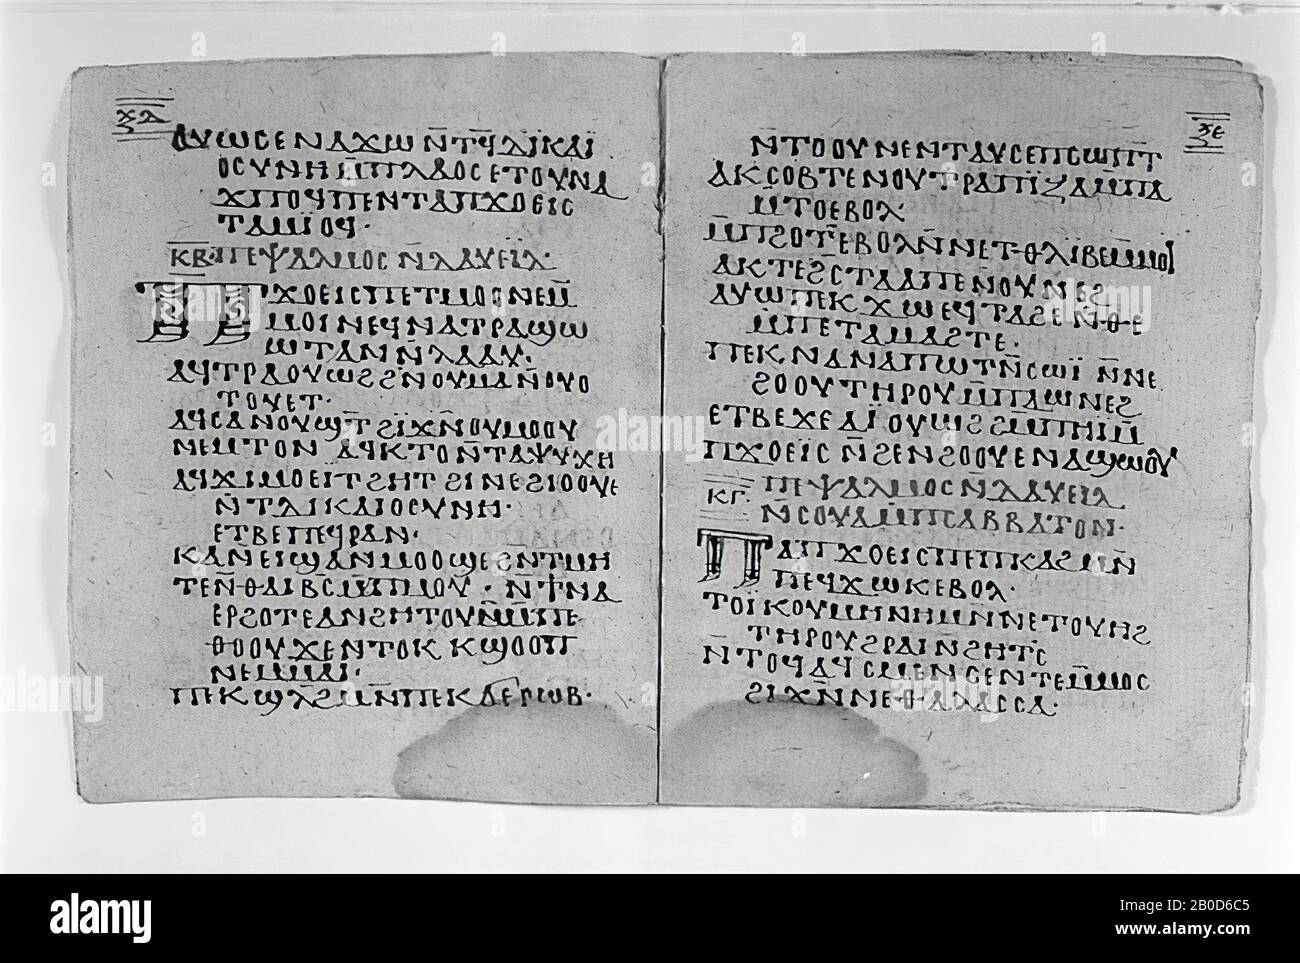 ⲝⲇ
ⲁⲩⲱ ⲥⲉⲛⲁϫⲱ ⲛ̄ⲧϥ̄ⲇⲓⲕⲁⲓ̈
ⲟⲥⲩⲛⲏ ⲙ̄ⲡⲗⲁⲟⲥ ⲉⲧⲟⲩⲛⲁ
ϫⲡⲟϥ ⲡⲉⲛⲧⲁⲡϫⲟⲉⲓⲥ
ⲧⲁⲙⲓⲟϥ·
ⲕⲃ· ⲡⲉⲯⲁⲗⲙⲟⲥ ⲛ̄ⲇⲁⲩⲉⲓⲇ·
ⲡϫⲟⲉⲓⲥ ⲡⲉⲧⲙⲟⲟⲛⲉ ⲙ̄
ⲙⲟⲓ ⲛⲉϥⲛⲁⲧⲣⲁϣⲱ
ⲱⲧ ⲁⲛ ⲛ̄ⲗⲁⲁⲩ·
ⲁϥⲧⲣⲁⲟⲩⲱϩ ϩⲛⲟⲩⲙⲁ ⲛ̄ⲟⲩⲟ
ⲧⲟⲩⲉⲧ·
ⲁϥⲥⲁⲛⲟⲩϣⲧ̄ ϩⲓ̈ϫⲛⲟⲩⲙⲟⲟⲩ
ⲛⲉⲙⲧⲟⲛ ⲁϥⲕⲧⲟ ⲛ̄ⲧⲁⲯⲩⲭⲏ
ⲁϥϫⲓⲙⲟⲉⲓⲧ ϩⲏⲧ ϩⲓ ⲛⲉϩⲓⲟⲟⲩⲉ
ⲛ̄ⲧⲇⲓⲕⲁⲓⲟⲥⲩⲛⲏ·
ⲉⲧⲃⲉ ⲡⲉϥⲣⲁⲛ·
ⲕⲁⲛ ⲉⲓϣⲁⲛⲙⲟⲟϣⲉ ϩⲛ ⲧⲙⲏ
ⲧⲉ ⲛ̄ⲑⲁⲓⲃⲥ ⲙ̄ⲡⲙⲟⲩ· ⲛ̄ϯⲛⲁ
ⲉⲣϩⲟⲧⲉ ⲁⲛ ϩⲏⲧⲟⲩ ⲛ̄ⲙ̄ⲡⲉ
ⲑⲟⲟⲩ ϫⲉ ⲛⲧⲟⲕ ⲕϣⲟⲟⲡ
ⲛⲉⲙⲙⲁⲓ·
ⲡⲉⲕϣⲗϩ ⲙⲛ̄ ⲡⲉⲕϭⲉⲣⲱⲃ·
ⲝⲉ
ⲛ̄ⲧⲟⲟⲩ ⲛⲉⲛⲧⲁⲩⲥⲉⲡⲥⲱⲡⲧ
ⲁⲕⲥⲟⲃⲧⲉ ⲛⲟⲩⲧⲣⲁⲡⲓⲍⲁ ⲙ̄ⲡⲁ
ⲙ̄ⲧⲟ ⲉⲃⲟⲗ·
ⲙ̄ⲡϩⲟⲧ ⲉⲃⲟⲗ ⲛ̄ⲛⲉⲧⲑⲗⲓⲃⲉ ⲙ̄ⲙⲟⲓ̈
ⲁⲕⲧⲉϩⲥ ⲧⲁⲁⲡⲉ ⲛⲟⲩⲛⲉϩ
ⲁⲩⲱ ⲡⲉⲕϫⲱ ⲉϥⲧⲁϩⲉ ⲛ̄ⲑⲉ
ⲙ̄ⲡⲉⲧⲁⲙⲁϩⲧⲉ·
ⲡⲉⲕⲛⲁ ⲛⲁⲡⲱⲧ ⲛ̄ⲥⲱⲓ̈ ⲛ̄ⲛⲉ
ϩⲟⲟⲩ ⲧⲏⲣⲟⲩ ⲙ̄ⲡⲁⲱⲛⲉϩ
ⲉⲧⲃⲉ ϫⲉ ⲁⲓ̈ⲟⲩⲱϩ ϩⲙ̄ⲡⲏⲓ ⲙ̄
ⲡϫⲟⲉⲓⲥ ⲛ̄ϩⲉⲛϩⲟⲟⲩ ⲉⲛⲁϣⲱⲟⲩ
ⲡⲉⲯⲁⲗⲙⲟⲥ ⲛ̄ⲇⲁⲩⲉⲓⲇ
ⲕⲅ· ⲛ̄ⲥⲟⲩⲁ ⲙ̄ⲡⲥⲁⲃⲃⲁⲧⲟⲛ·
ⲡⲁⲡϫⲟⲉⲓⲥ ⲡⲉ ⲡⲕⲁϩ ⲙⲛ̄
ⲡⲉϥϫⲱⲕ ⲉⲃⲟⲗ·
ⲧⲟⲓ̈ⲕⲟⲩⲙⲏⲛⲏ ⲙⲛ̄ ⲛⲉⲧⲟⲩⲏϩ
ⲧⲏⲣⲟⲩ ϩⲣⲁⲓ̈ ⲛ̄ϩⲏⲧⲥ̄
ⲛ̄ⲧⲟϥ ⲁϥⲥⲙⲉⲛⲥⲉⲛⲧⲉ ⲙ̄ⲙⲟⲥ
ϩⲓϫⲛ̄ ⲛⲉⲑⲁⲗⲁⲥⲥⲁ·
alamy
Image ID: 2B0D6C5
www.alamy.com